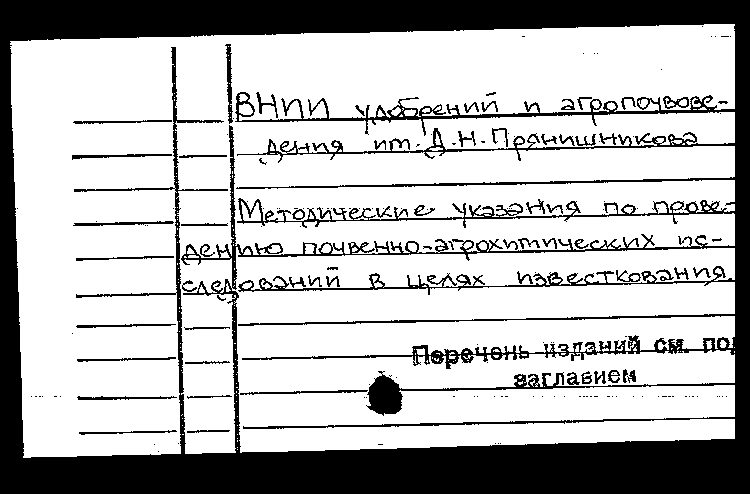 ВНИИ удобрений и агропочвове-
дения им. Д.Н. Прянишникова
Методические указания по прове-
дению почвенно-агрохимических ис-
следований в целях известкования.
Перечень изданий см. под
заглавием